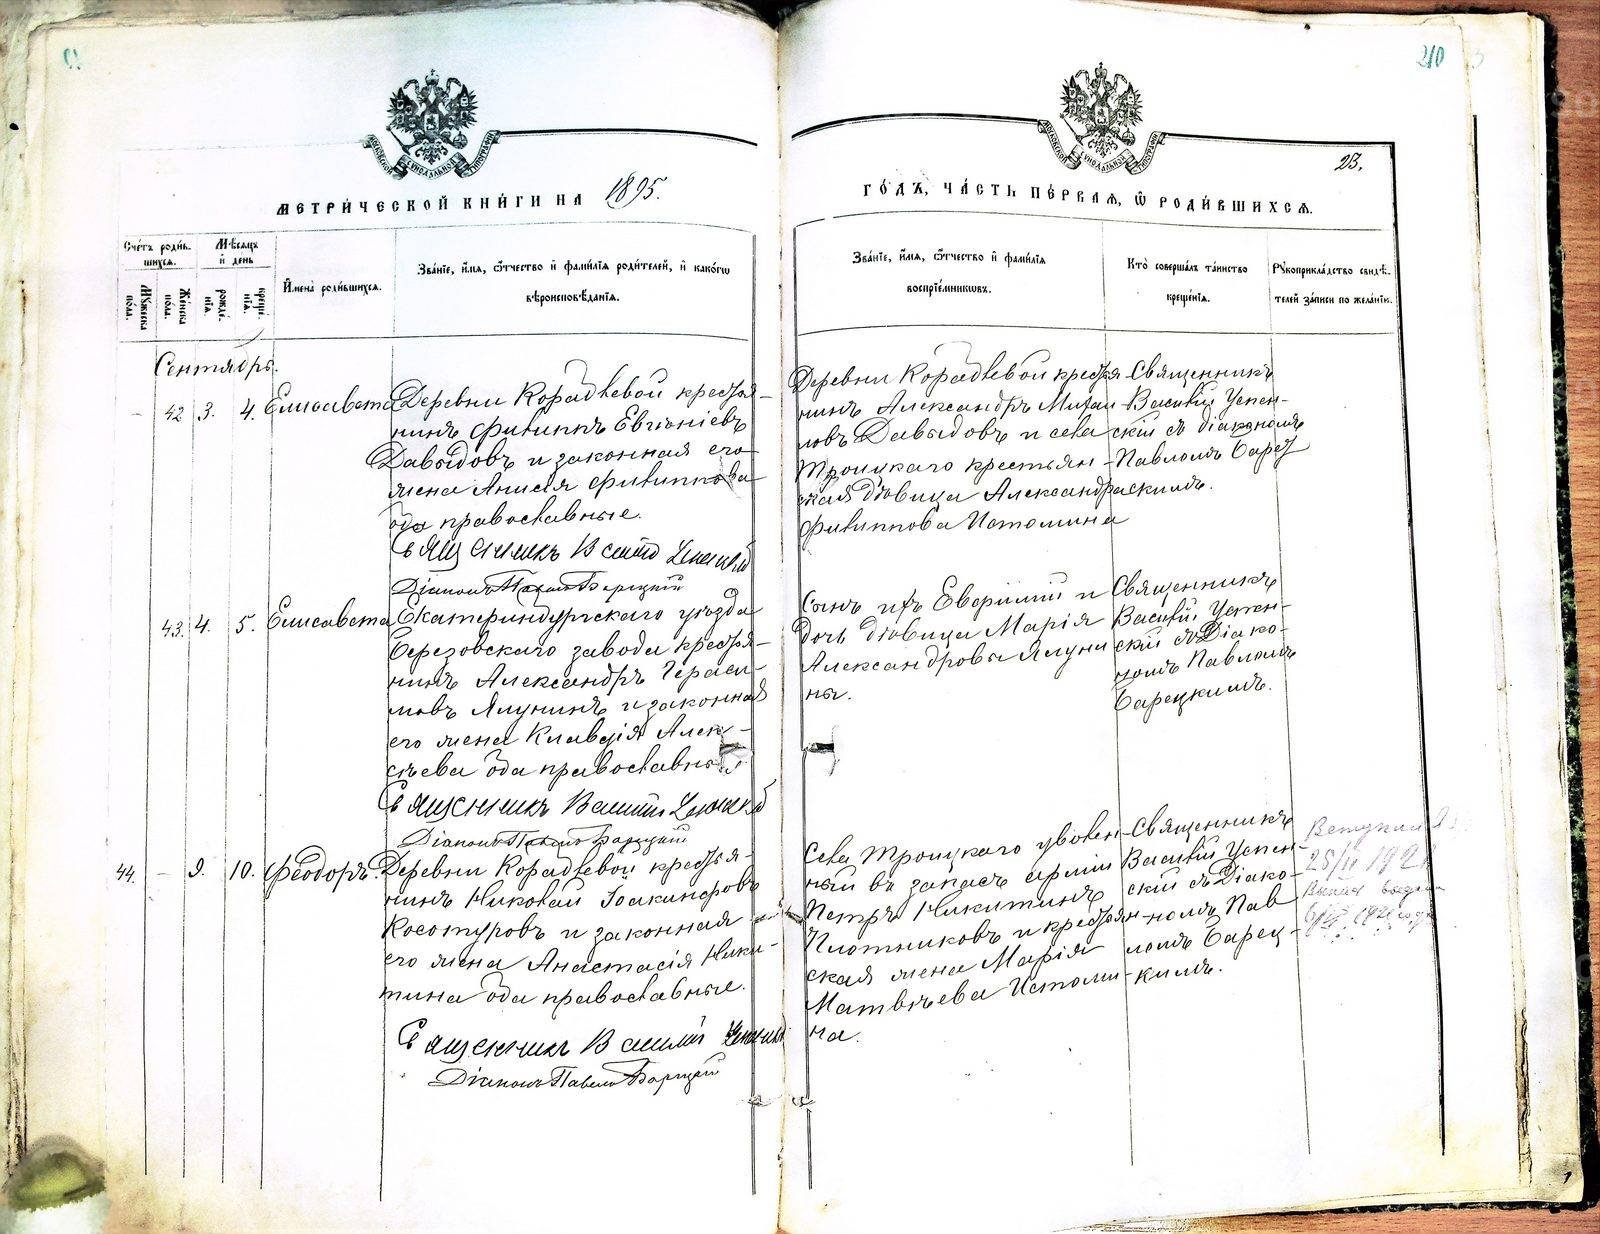 210
МОСКОВСКОЙ СѴНОДАЛЬНОЙ ТИПОГРАФІИ
МОСКОВСКОЙ СѴНОДАЛЬНОЙ ТИПОГРАФІИ
23.
МЕТРИ́ЧЕСКОЙ КНИ́ГИ НА 1895.
ГО́ДЪ, ЧА́СТЬ ПЕ́РВАЯ, Ѽ РОДИ́ВШИХСЯ.
Сче́тъ роди́в-
шихся.
Му́жеска
по́ла.
Же́нска
по́ла.
Мѣ́сяцъ
и҆ де́нь
рожде́-
нїя.
креще́-
нїя.
И҆мена̀ роди́вшихся.
Зва́нїе, и҆́мя, ѻ҆́тчество и҆ фами́лїя роди́телей, и҆ како́гѡ
вѣроисповѣ́данїя.
Зва́нїе, и҆́мя, ѻ҆́тчество и҆ фами́лїя
воспрїе́мникѡвъ.
Кто̀ соверша́лъ та́инство
креще́нїя.
Рꙋкоприкла́дство свидѣ́-
телей за́писи по жела́нїю.
Сентябрь.
- 42 3. 4. Елисавета
Деревни Кораблевой кресть-
нинъ Филиппъ Евгеніевъ
Давыдовъ и законная его
жена Анисія Филиппова
оба православные.
Священникъ Василій Успенскій
Діаконъ Павелъ Барецкій
Деревни Кораблевой крестья-
нинъ Александръ Михаи-
ловъ Давыдовъ и села
Троицкаго крестьян-
ская дѣвица Александра
Филиппова Истомина
Священникъ
Василій Успен-
скій съ діакономъ
Павломъ Барец-
кимъ.
43. 4. 5. Елисавета
Екатеринбургскаго уѣзда
Березовскаго завода крестья-
нинъ Александръ Гераси-
мовъ Ялунинъ и законная
его жена Клавдія Алек-
сѣева оба православные
Священникъ Василій Успенскій
Діаконъ Павелъ Барецкій
Сынъ ихъ Евфимій и
дочь дѣвица Марія
Александровы Ялуни-
ны.
Священникъ
Василій Успен-
скій съ Діако-
номъ Павломъ
Барецкимъ.
44. - 9. 10. Феодоръ.
Деревни Кораблевой крестья-
нинъ Николай Іоакинфовъ
Косотуровъ и законная
его жена Анастасія Ники-
тина оба православные.
Священникъ Василій Успенскій
Діаконъ Павелъ Барецкій
Села Троицкаго уволен-
ный въ запасъ арміи
Петръ Никитинъ
Плотниковъ и крестьян-
ская жена Марія
Матвѣева Истоми-
на.
Священникъ
Василій Успен-
скій съ Діако-
номъ Пав
ломъ Барец-
кимъ.
25/II 1921